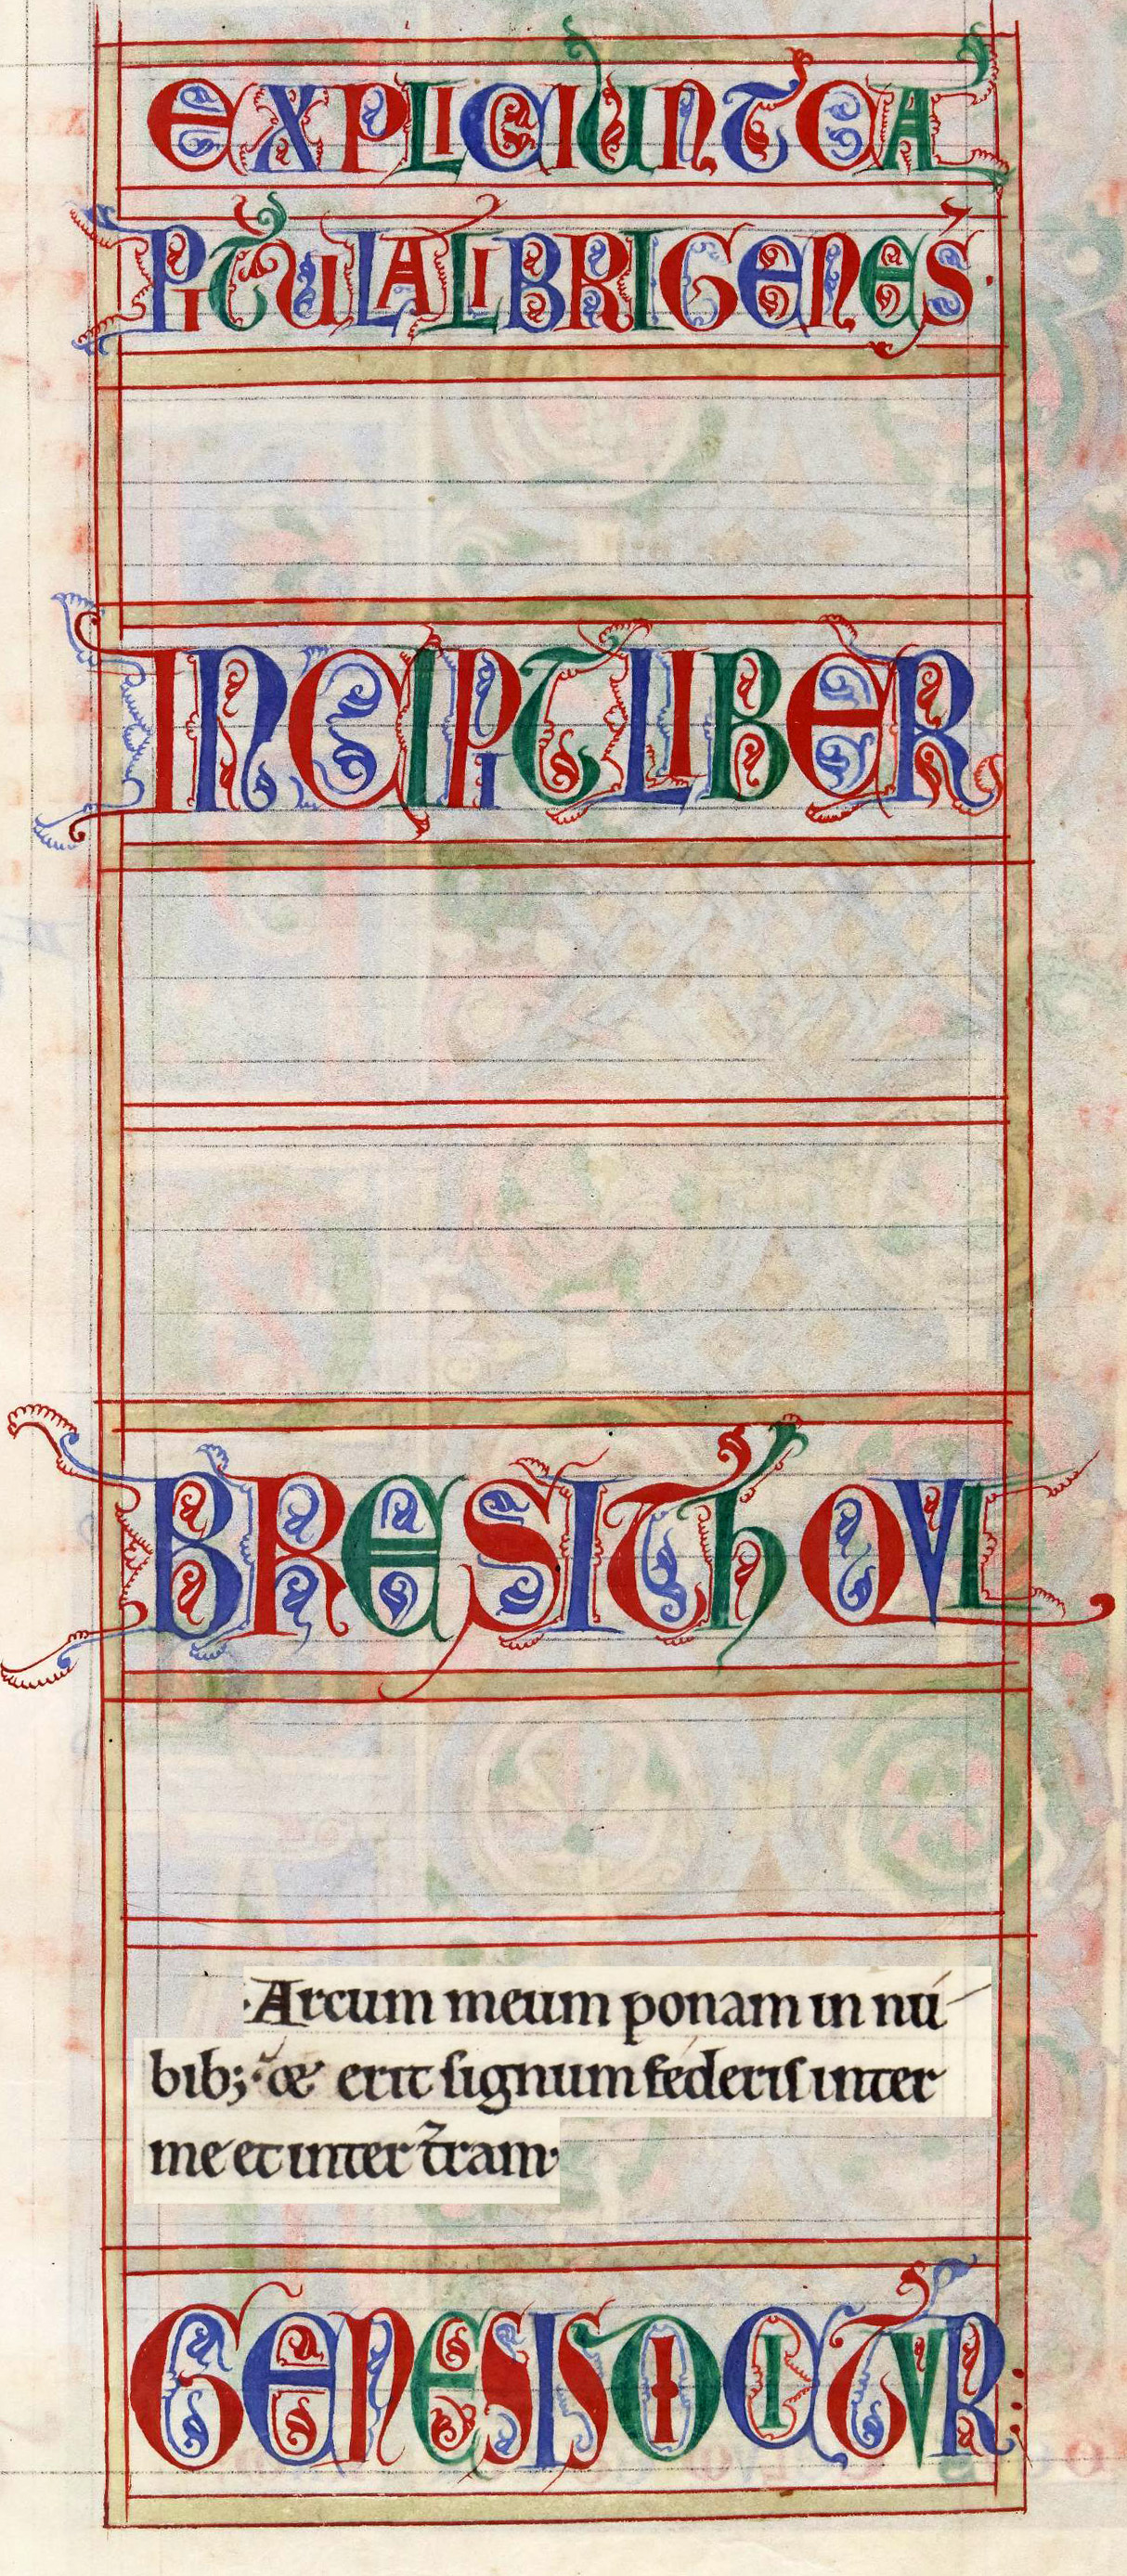 EXPLICIUNT CA
PITULA LIBRI GENES̄.
INCIPIT LIBER
BRESITH QVI
·Arcum meum ponam in nu
bib; ⁊ erit signum fęderis inter
me et inter t̄ram·
GENESIS DICITVR: